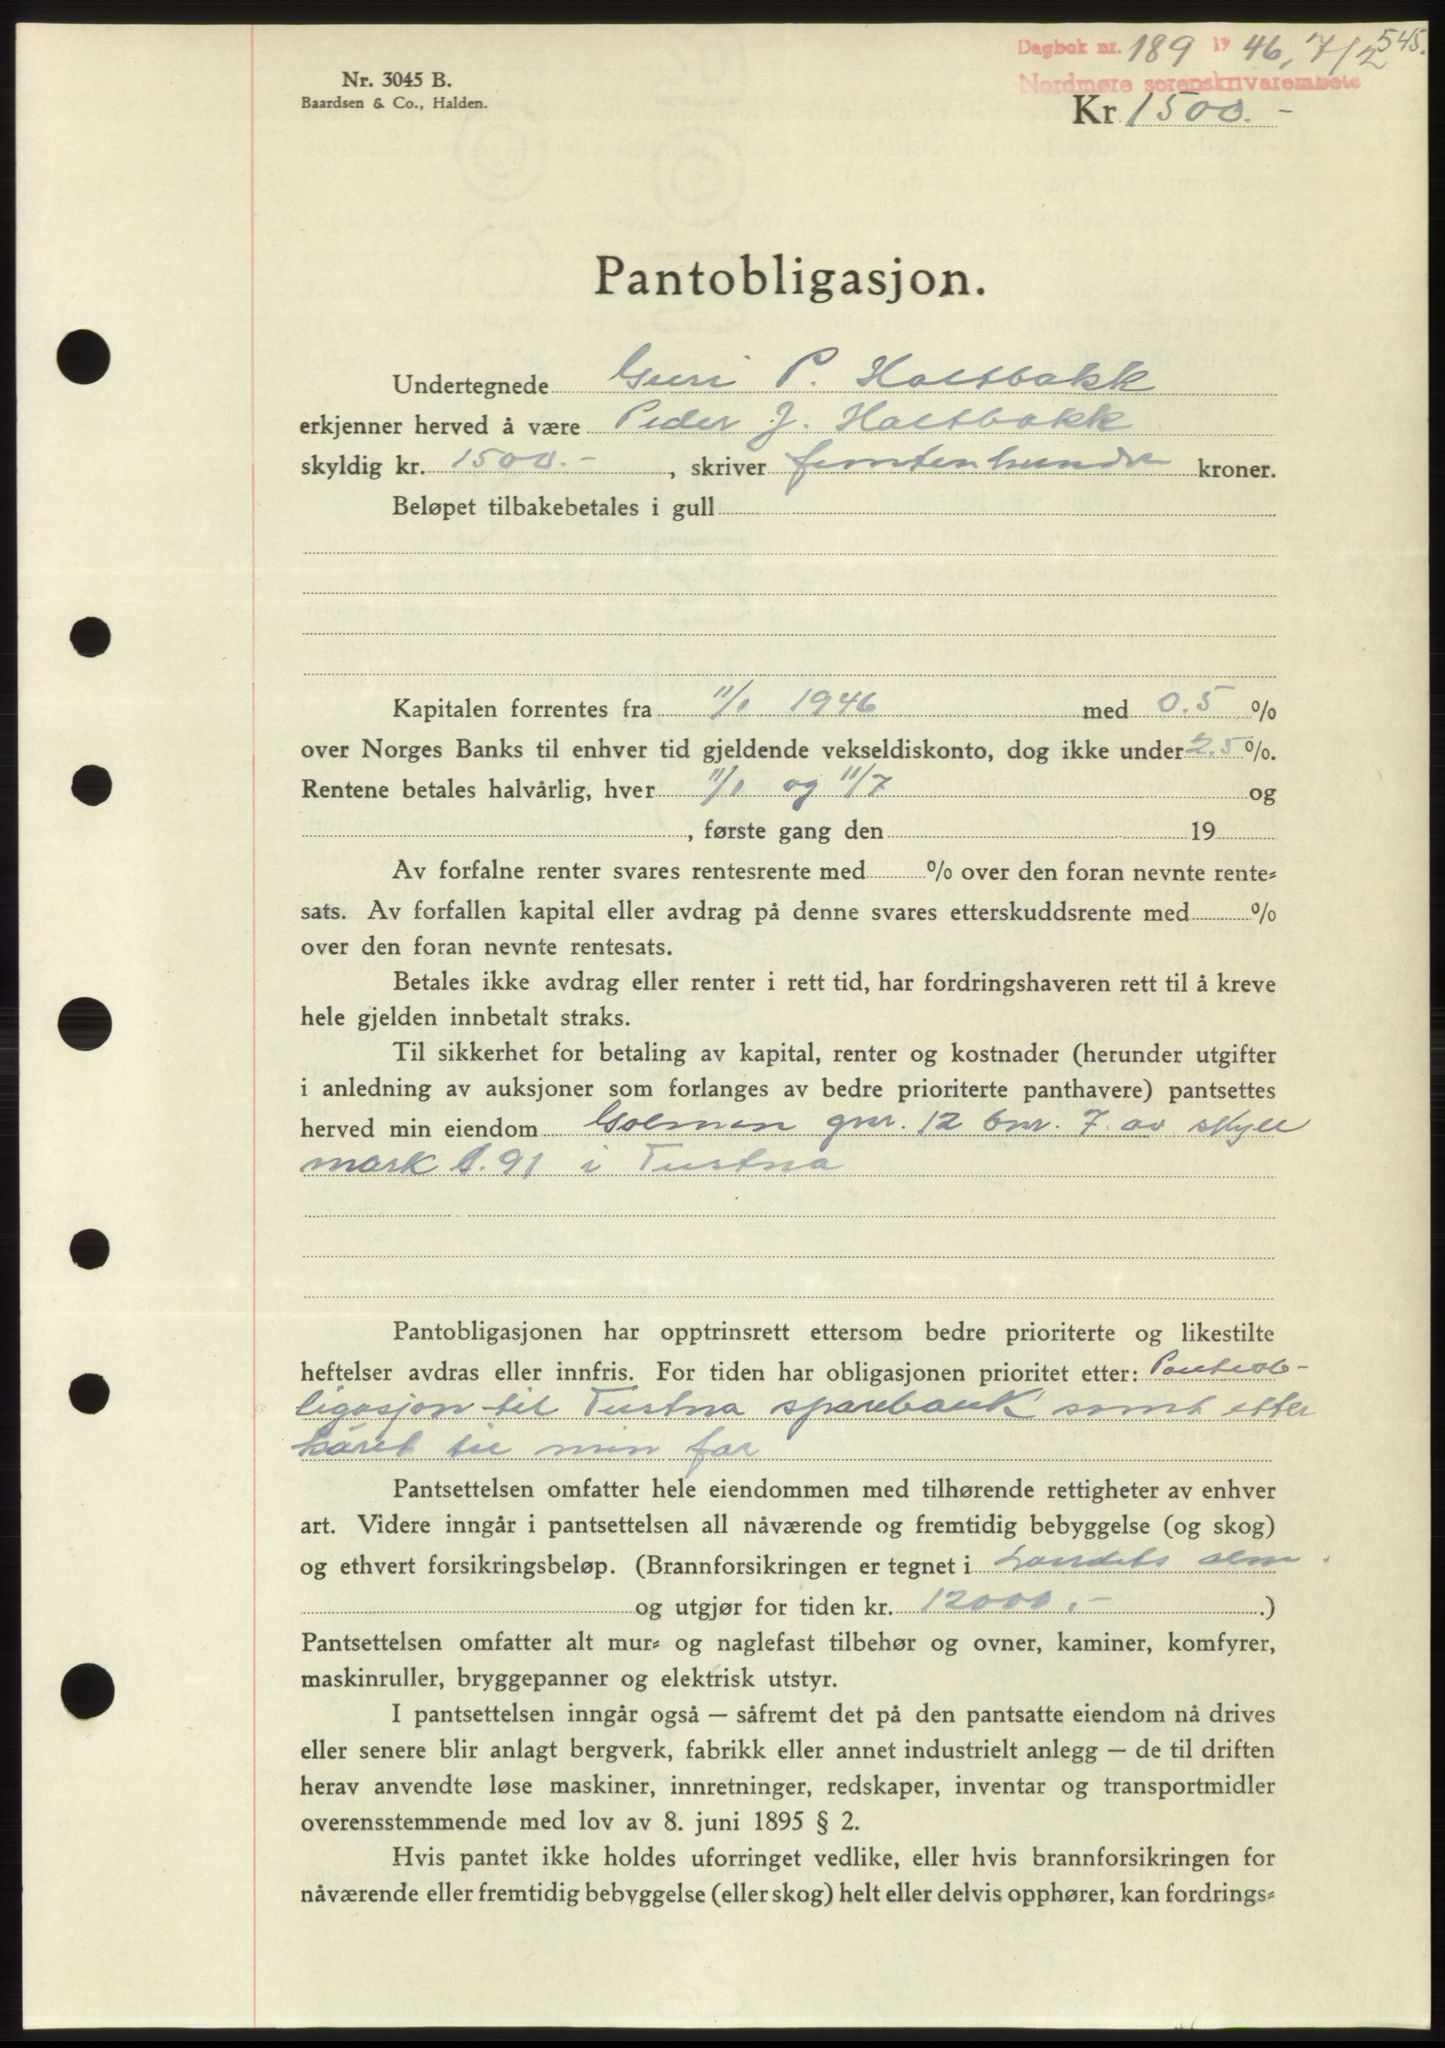 545.
Dagbok nr. 189 1946, 7/2
Nordmøre sorenskrivarembete
Nr. 3045 B.
Baardsen & Co., Halden.
Kr 1500.-
Pantobligasjon.
Undertegnede Guri P. Holtbakk
erkjenner herved å være Peder J. Holtbakk
skyldig kr. 1500.- , skriver femtenhundre kroner.
Beløpet tilbakebetales i gull
Kapitalen forrentes fra 11/1 1946 med 0.5 %
over Norges Banks til enhver tid gjeldende vekseldiskonto, dog ikke under 2.5 %.
Rentene betales halvårlig, hver 11/1 og 11/7 og
, første gang den 19
Av forfalne renter svares rentesrente med % over den foran nevnte rente-
sats. Av forfallen kapital eller avdrag på denne svares etterskuddsrente med %
over den foran nevnte rentesats.
Betales ikke avdrag eller renter i rett tid, har fordringshaveren rett til å kreve
hele gjelden innbetalt straks.
Til sikkerhet for betaling av kapital, renter og kostnader (herunder utgifter
i anledning av auksjoner som forlanges av bedre prioriterte panthavere) pantsettes
herved min eiendom Golmen gnr. 12 bnr. 7. av skyll
mark 1.91 i Tustna
Pantobligasjonen har opptrinsrett ettersom bedre prioriterte og likestilte
heftelser avdras eller innfris. For tiden har obligasjonen prioritet etter: Pantob-
ligasjon til Tustna sparebank samt etter
kåret til min far
Pantsettelsen omfatter hele eiendommen med tilhørende rettigheter av enhver
art. Videre inngår i pantsettelsen all nåværende og fremtidig bebyggelse (og skog)
og ethvert forsikringsbeløp. (Brannforsikringen er tegnet i Landets alm.
og utgjør for tiden kr. 12000.- .)
Pantsettelsen omfatter alt mur- og naglefast tilbehør og ovner, kaminer, komfyrer,
maskinruller, bryggepanner og elektrisk utstyr.
I pantsettelsen inngår også — såfremt det på den pantsatte eiendom nå drives
eller senere blir anlagt bergverk, fabrikk eller annet industrielt anlegg — de til driften
herav anvendte løse maskiner, innretninger, redskaper, inventar og transportmidler
overensstemmende med lov av 8. juni 1895 § 2.
Hvis pantet ikke holdes uforringet vedlike, eller hvis brannforsikringen for
nåværende eller fremtidig bebyggelse (eller skog) helt eller delvis opphører, kan fordrings-